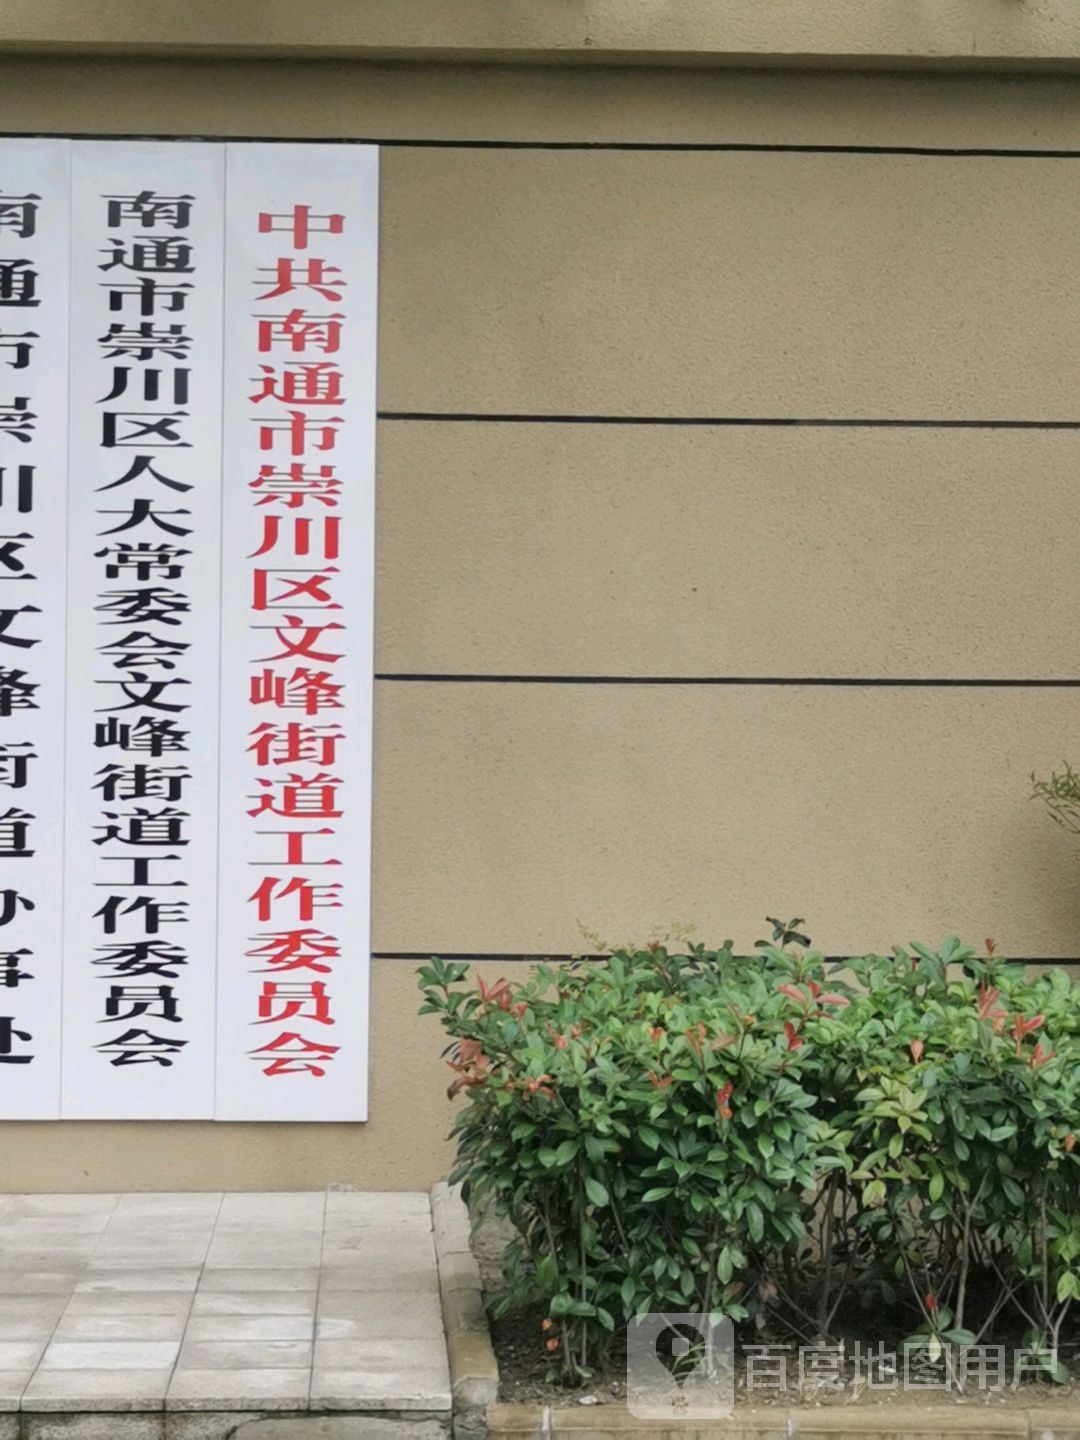 中共南通市崇川区文峰街道工作委员会
南通市崇川区人大常委会文峰街道工作委员会
南通市崇川区文峰街道办事处
百度地图用户